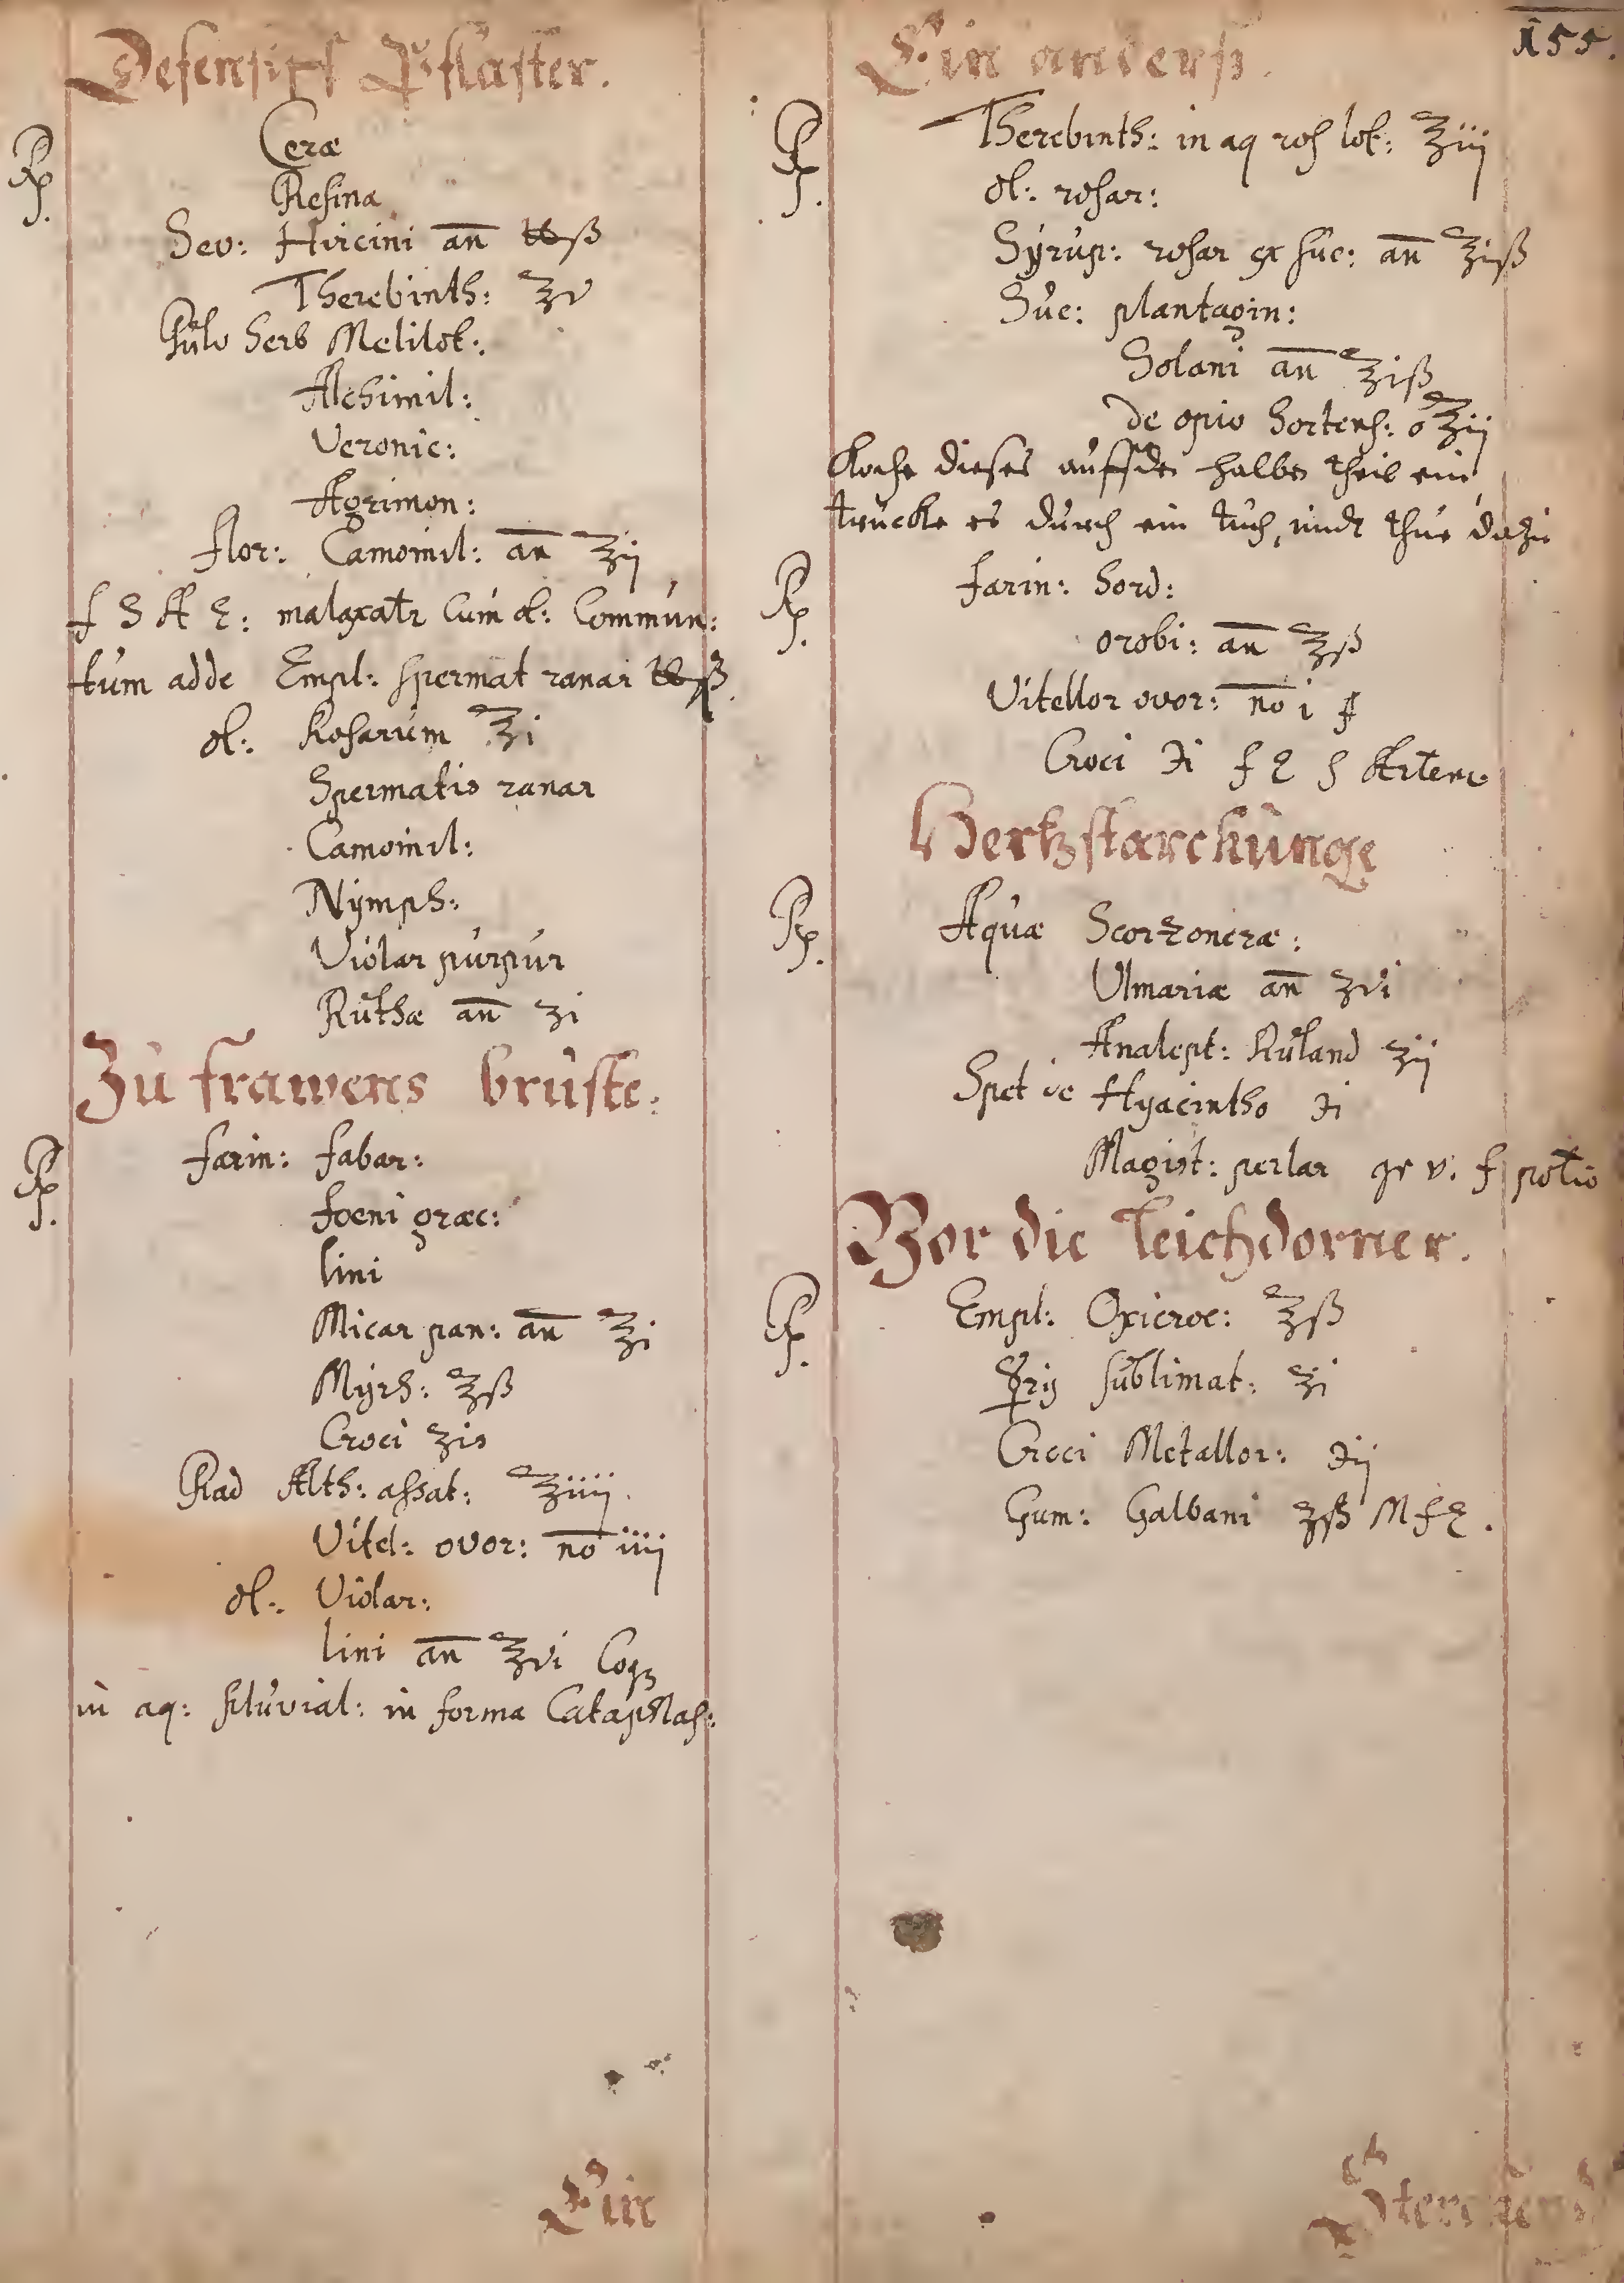 155.
Defensifs Pflaster.
℞. Ceræ
Resinæ
Sev: Hircini an ℔ß
Therebinth: ℥v
Pulv herb Melilot:
Alchimil:
Veronic:
Agrimon:
flor: Camomil: an ℥ij
f S A E: malaxatr cum ol: Commun:
tum adde Empl: spermat ranar ℔ß
ol: Rosarum ℥i
Spermatis ranar
Camomil:
Nÿmph:
Violar purpur
Ruthæ an ʒi
Zu frawens bruste:
℞. farin: fabar:
foeni græc:
lini
Micar pan: an ℥i
Mÿrh: ℥ß
Croci ʒis
Rad Alth: assat: ℥iiij.
Vitel: ovor: no iiij
ol: Violar:
lini an ℥vi Coqʒ
in aq: fluvial: in forma Cataplas:
Ein
Ein anderß.
℞. Therebinth: in aq ros lot: ℥iij
ol: rosar:
Sÿrup: rosar ex suc: an ℥iß
Suc: plantagin:
Solani an ℥iß
de opio hortens: ℥ij
Koche dieses auff den halben theil ein,
trucke es durch ein tuch, undt thue dazu
℞. farin: hord:
orobi: an ℥ß
Vitellor ovor: no i
Croci ℈i f E S Artem
Hertzstarckunge
℞. Aquæ Scorzoneræ:
Ulmariæ an ʒvi
Analept: Ruland ʒij
Spet de Hyacintho ℈i
Magist: perlar gr v: f potio
Vor die Leichdorner.
℞. Empl: Oxicroc: ℥ß
☿rij sublimat: ʒi
Croci Metallor: ℈ij
Gum: Galbani ʒß M f E.